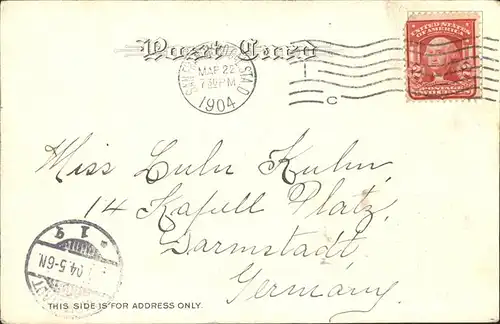 Post Card
MAR 22
7 30 PM
1904
C
UNITED STATES
OF AMERICA
POSTAGE
Miss Lulu Kuhn,
14 Kapell Platz,
Darmstadt,
Germany.
04.5-6N.
THIS SIDE IS FOR ADDRESS ONLY.